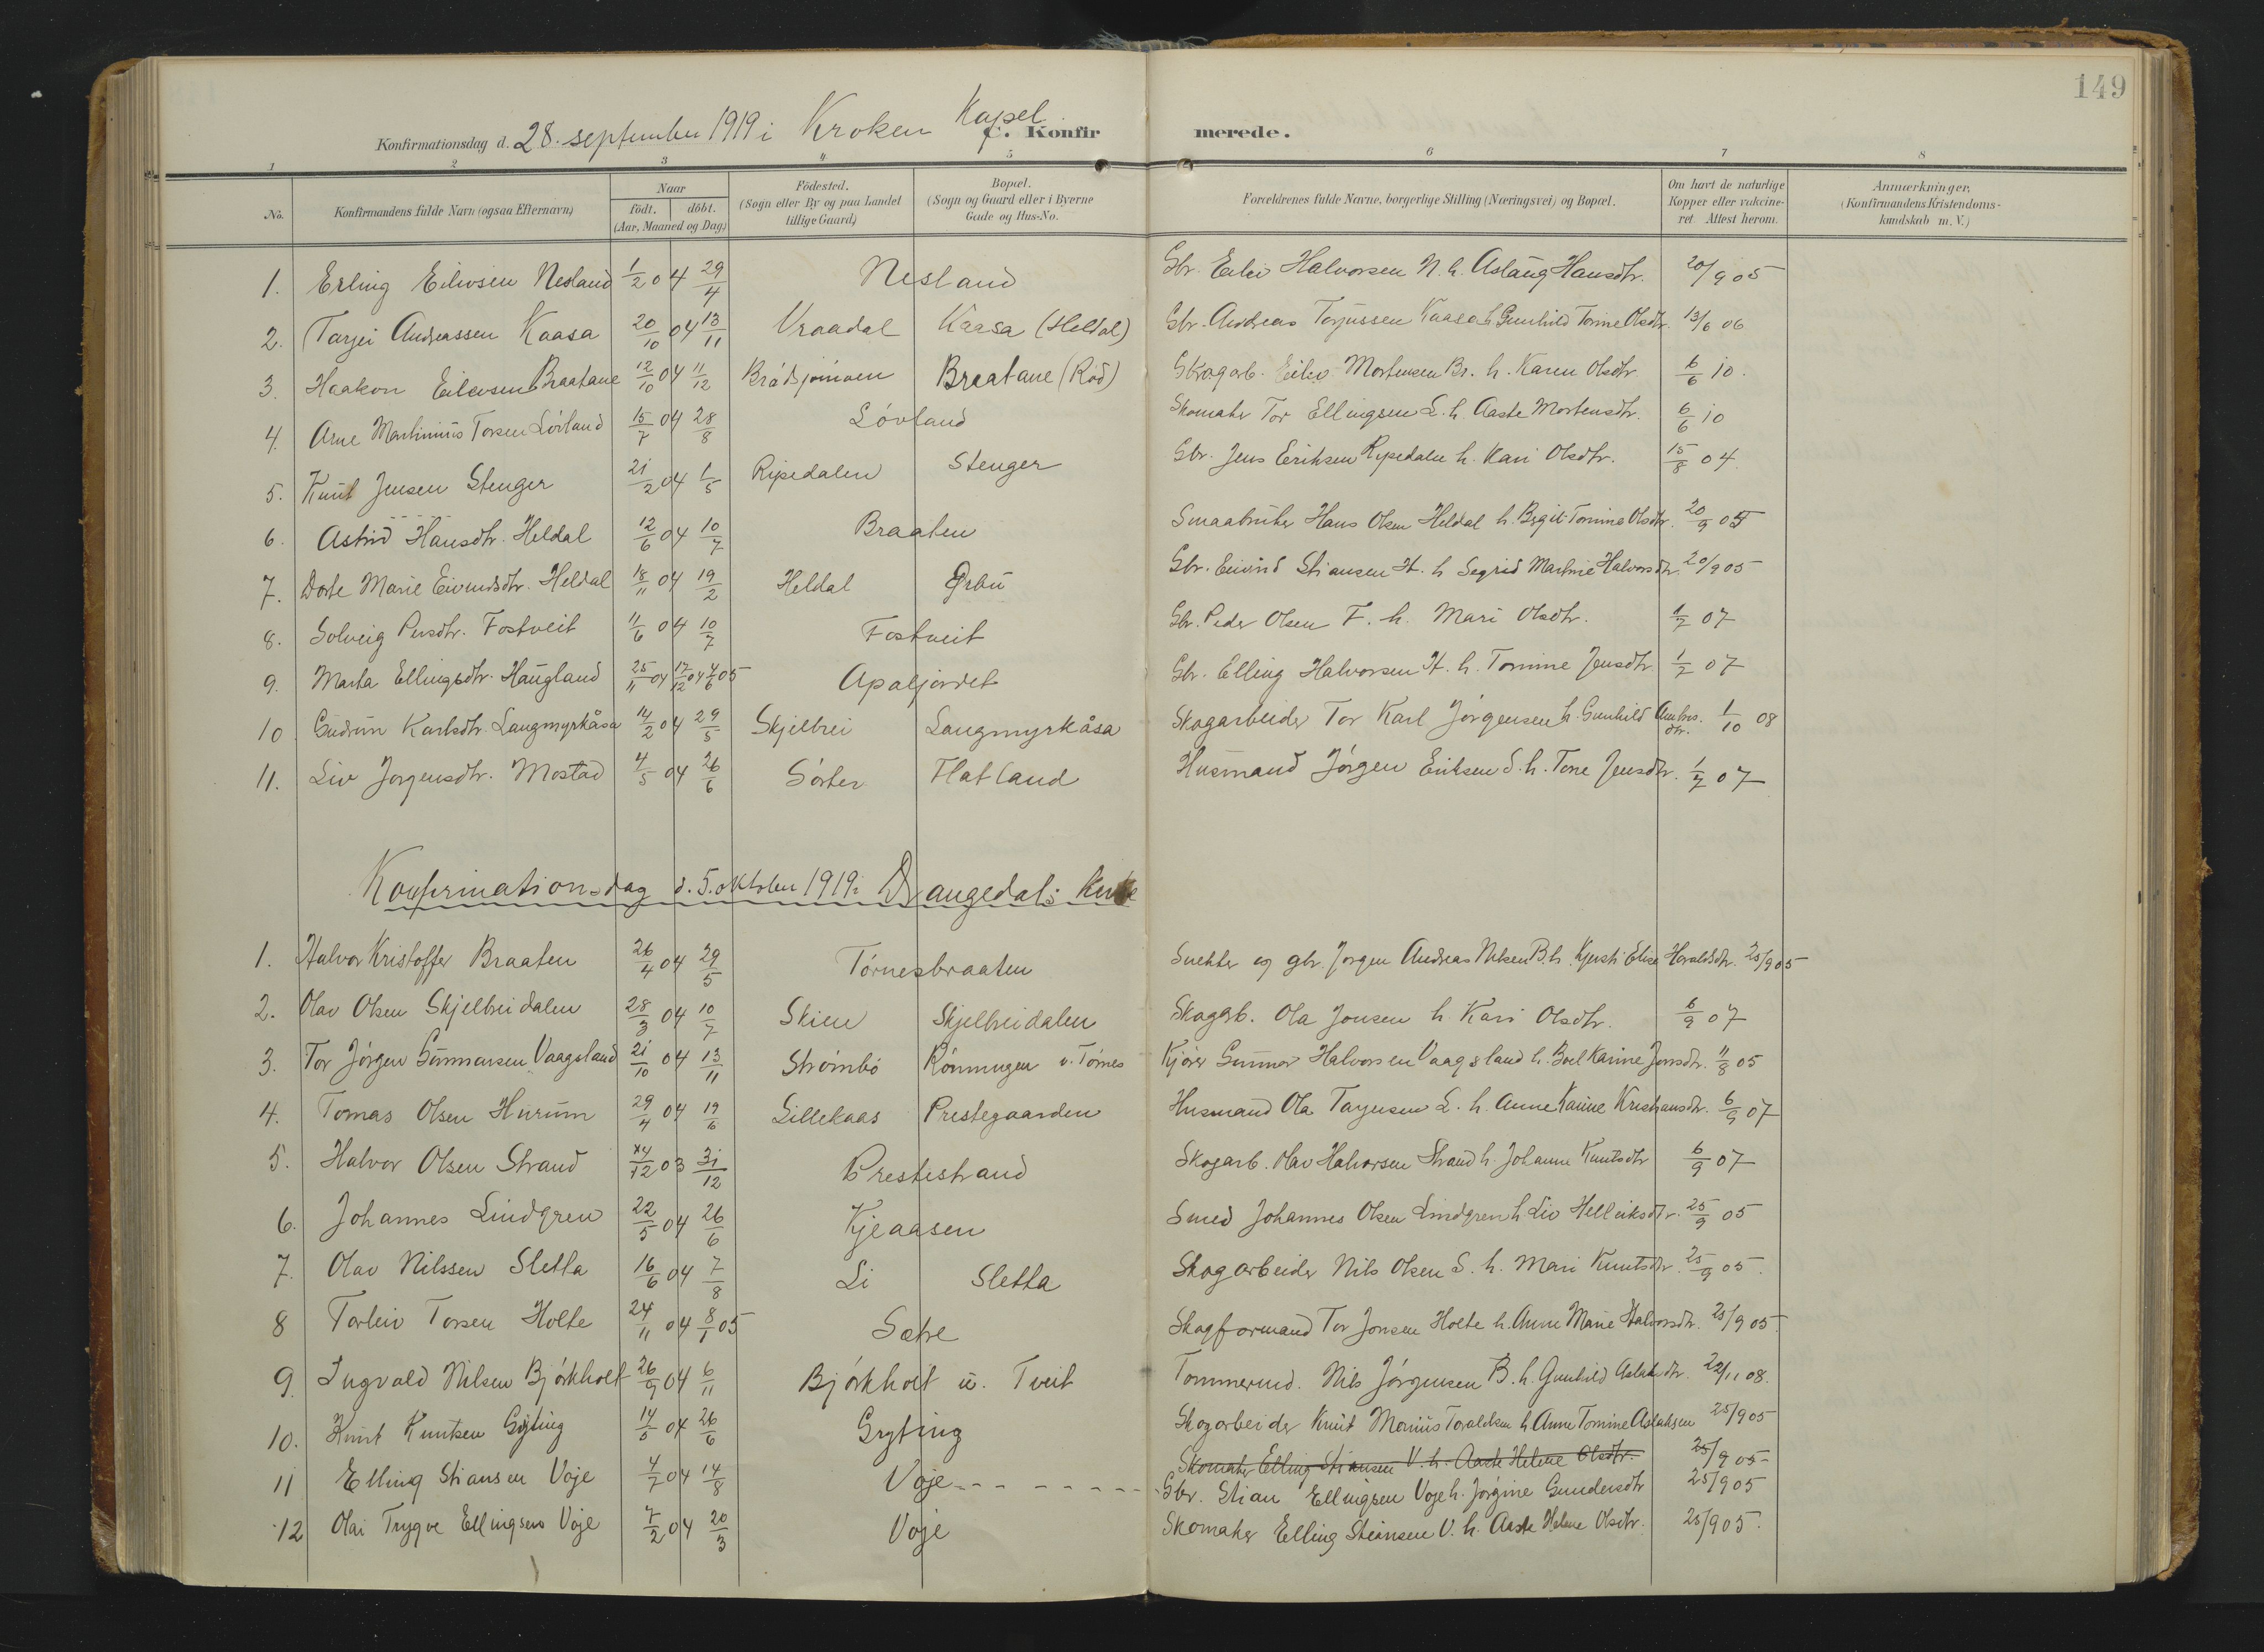 149
Konfirmationsdag d. 28. september 1919 i Kroken Kapel
C. Konfirmerede.
1 2 3 4 5 6 7 8
No. Konfirmandens fulde Navn (ogsaa Efternavn) Naar födt. döbt. (Aar, Maaned og Dag) Födested. (Sogn eller By og paa Landet tillige Gaard) Bopæl. (Sogn og Gaard eller i Byerne Gade og Hus-No. Forældrenes fulde Navne, borgerlige Stilling (Næringsvei) og Bopæl. Om havt de naturlige Kopper eller vakcineret. Attest herom. Anmærkninger, (Konfirmandens Kristendomskundskab m. V.)
1. Erling Eilivsen Nesland 1/2 04 29/4 Nesland Gbr. Eiliv Halvorsen N. h. Aslaug Hansdtr. 20/9 05
2. Tarjei Andreassen Kaasa 20/10 04 13/11 Vraadal Kaasa (Heldal) Gbr. Andreas Torjussen Kaasa h. Gunhild Tomine Olsdtr. 13/6 06
3. Haakon Eilevsen Braatane 12/10 04 11/12 Brødsjømoen Braatane (Rød) Skogarb. Eiliv Mortensen Br. h. Karen Olsdtr. 6/6 10.
4. Arne Martinius Torsen Lövland 15/7 04 28/8 Lövland Skomaker Tor Ellingsen L. h. Aaste Mortensdtr. 6/6 10
5. Knut Jensen Stenger 21/2 04 1/5 Ripedalen Stenger Gbr. Jens Eriksen Ripedalen h. Kari Olsdtr. 15/8 04.
6. Astrid Hansdtr. Heldal 12/6 04 10/7 Braaten Smaabruker Hans Olsen Heldal h. Birgit Tomine Olsdtr. 20/9 05
7. Dorte Marie Eivindsdtr. Heldal 18/11 04 19/2 Heldal Ørbu Gbr. Eivind Stiansen H. h. Segrid Martine Halvorsdtr. 20/9 05
8. Solveig Persdtr. Fostveit 11/6 04 10/7 Fostveit Gbr. Peder Olsen F. h. Mari Olsdtr. 1/7 07
9. Marta Ellingsdtr. Haugland 25/11 04 17/12 04 4/6 05 Apaljordet Gbr. Elling Halvorsen H. h. Tomine Jensdtr. 1/2 07
10 Gudrun Karlsdtr. Langmyrkåsa 14/2 04 29/5 Skjelbrei Langmyrkåsa Skogarbeider Tor Karl Jörgensen h. Gunhild Ambrs.dtr. 1/10 08
11. Liv Jorgensdtr. Mostad 4/5 04 26/6 Sörter Flatland Husmand Jörgen Eriksen S. h. Tone Jensdtr. 1/7 07
Konfirmationsdag d. 5. oktober 1919 i Drangedals kirke
1. Halvor Kristoffer Braaten 26/4 04 29/5 Törnesbraaten Snekker og gbr. Jorgen Andreas Nilsen B. h. Kjersti Elise Haraldsdtr. 25/9 05
2. Olav Olsen Skjelbreidalen 28/3 04 10/7 Skien Skjelbreidalen Skogarb. Ola Jonsen h. Kari Olsdtr. 6/9 07
3. Tor Jörgen Gunnarsen Vaagsland 21/10 04 13/11 Strömbö Rönningen u. Törnes Kjörer Gunnar Halvorsen Vaagsland h. Boel Karine Jonsdtr. 11/8 05
4. Tomas Olsen Hurum 29/4 04 19/6 Lillekaas Prestegaarden Husmand Ola Tarjeisen L. h. Anne Karine Kristiansdtr. 6/9 07
5. Halvor Olsen Strand 14/12 03 31/12 Prestestrand Skogarb. Olav Halvorsen Strand h. Johanne Knutsdtr 6/9 07
6. Johannes Lindgren 22/5 04 26/6 Kjeaasen Smed Johannes Olsen Lindgren h. Liv Helleiksdtr. 25/9 05
7. Olav Nilssen Sletta 16/6 04 7/8 Li Sletta Skogarbeider Nils Olsen S. h. Mari Knutsdtr. 25/9 05.
8 Torleiv Torsen Holte 24/11 04 8/1 05 Sætre Skogformand Tor Jonsen Holte h. Anne Marie Halvorsdtr. 25/9 05.
9. Ingvald Nilsen Björkholt 26/9 04 6/11 Björkholt u. Tveit Tommermd. Nils Jörgensen B. h. Gunhild Aslakdtr. 22/11 08.
10. Knut Knutsen Gryting 14/5 04 26/6 Gryting Skogarbeider Knut Marius Toraldsen h. Anne Tomine Aslaksen 25/9 05
Skomaker Elling Stiansen V. h. Aaste Helene Olsdtr. 25/9 05
11 Elling Stiansen Voje 4/7 04 14/8 Voje Gbr. Stian Ellingsen Voje h. Jörgine Gundersdtr 25/9 05
12 Olai Trygve Ellingsen Voje 7/2 04 20/3 Voje Skomaker Elling Steinsen V. h. Aaste Helene Olsdtr. 25/9 05.